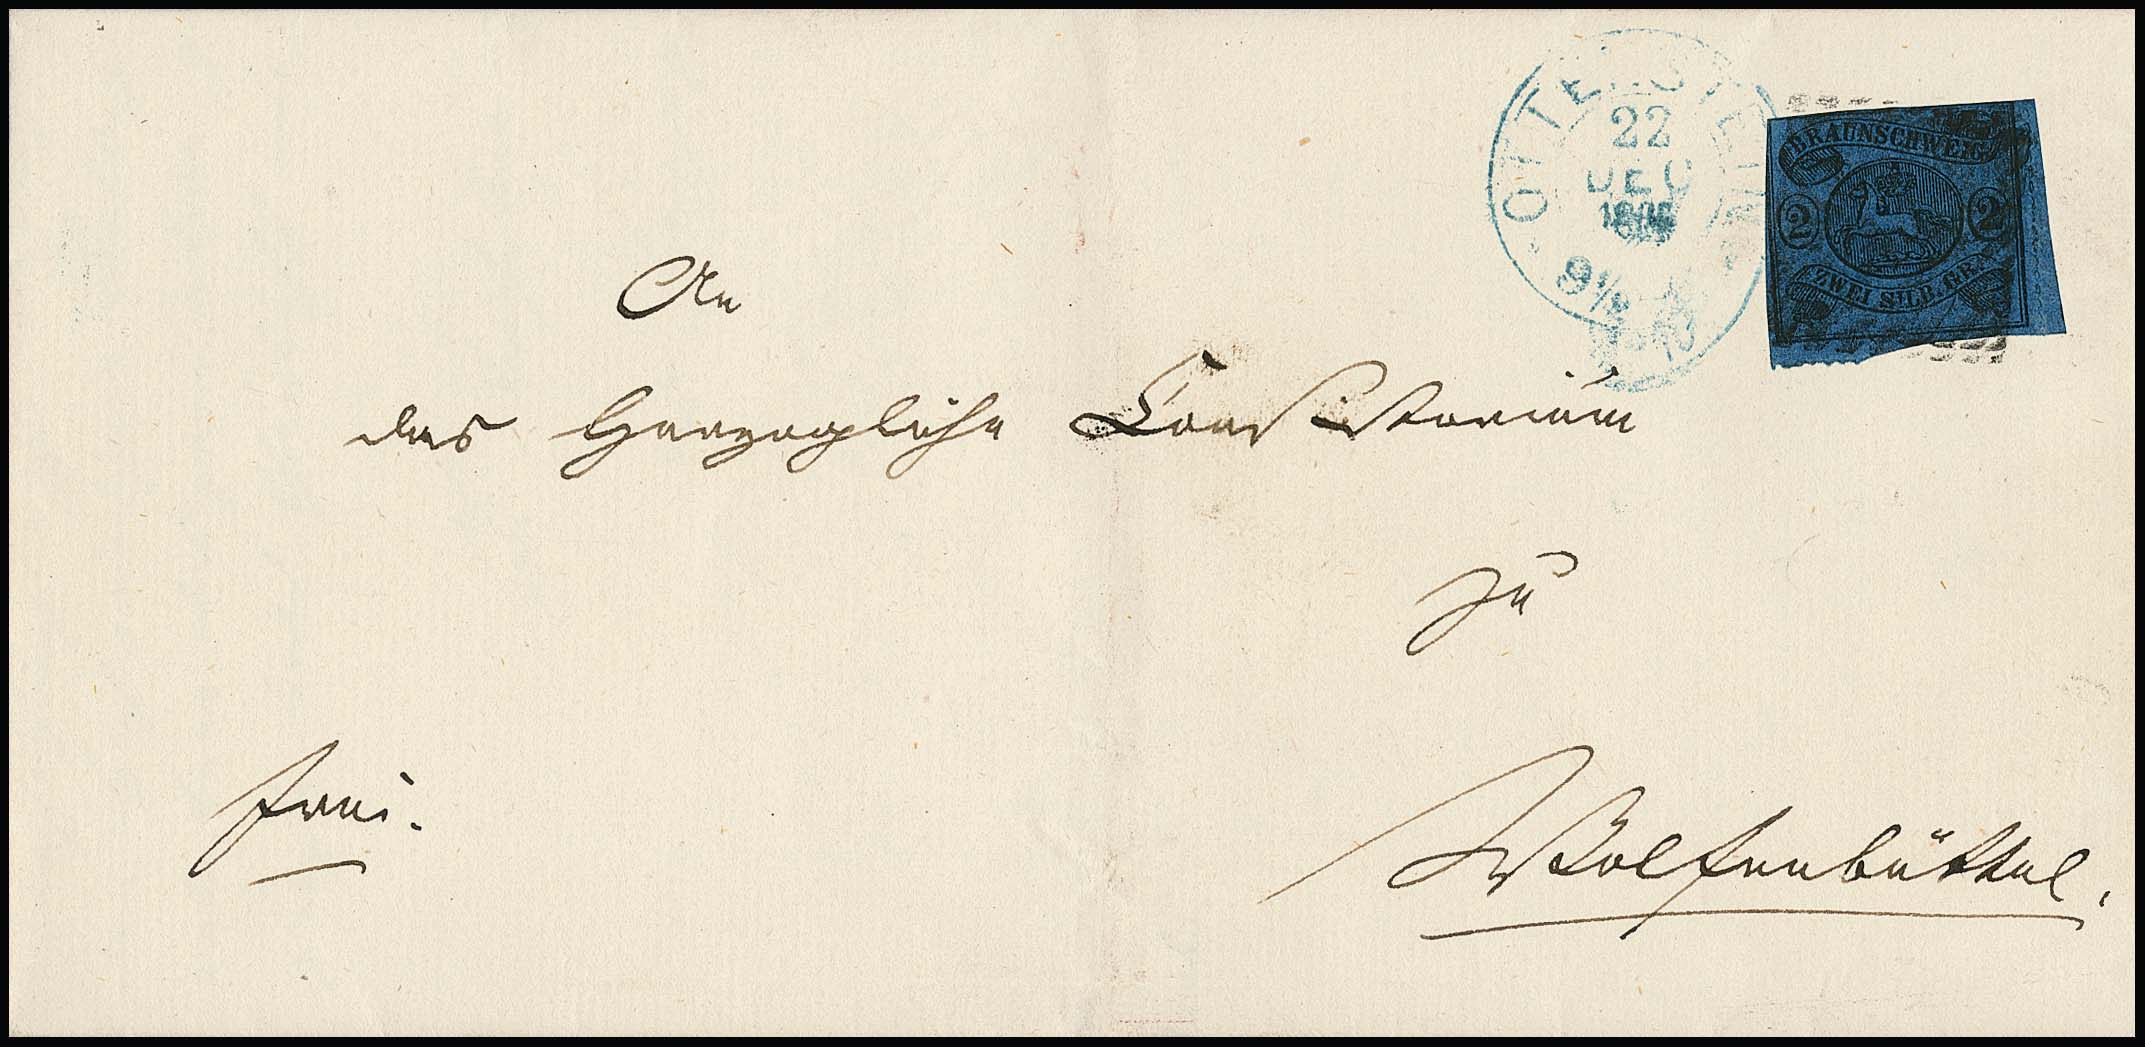 OTTENSTEIN
22
DEC
9½
BRAUNSCHWEIG
2 2
ZWEI SILB. GR.
An
das Herzogliche Consistorium
zu
frei.
Wolfenbüttel.